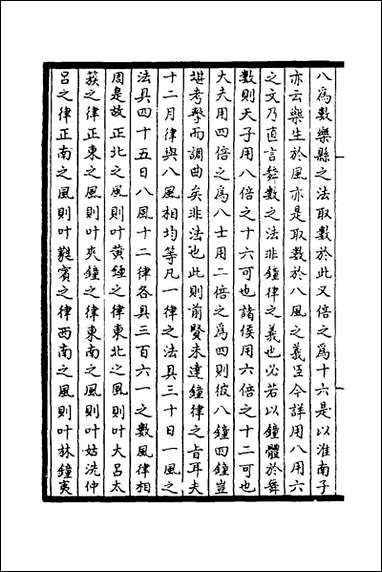 八為數樂縣之法取數於此又倍之為十六是以淮南子
亦云樂生於風亦是取數於八風之義臣今詳用八用六
之文乃直言舞數之法非鐘律之義也必若以鐘體於舞
數則天子用八倍之十六可也諸侯用六倍之十二可也
大夫用四倍之為八士用二倍之為四則彼八鐘四鐘豈
堪考擊而調曲矣非法也此則前賢未達鐘律之旨耳夫
十二月律與八風相均等凡一律之法具三十日一風之
法具四十五日八風十二律各具三百六一之數風律相
周是故正北之風則叶黃鍾之律東北之風則叶大呂太
蔟之律正東之風則叶夾鐘之律東南之風則叶姑洗仲
呂之律正南之風則叶蕤賓之律西南之風則叶林鐘夷